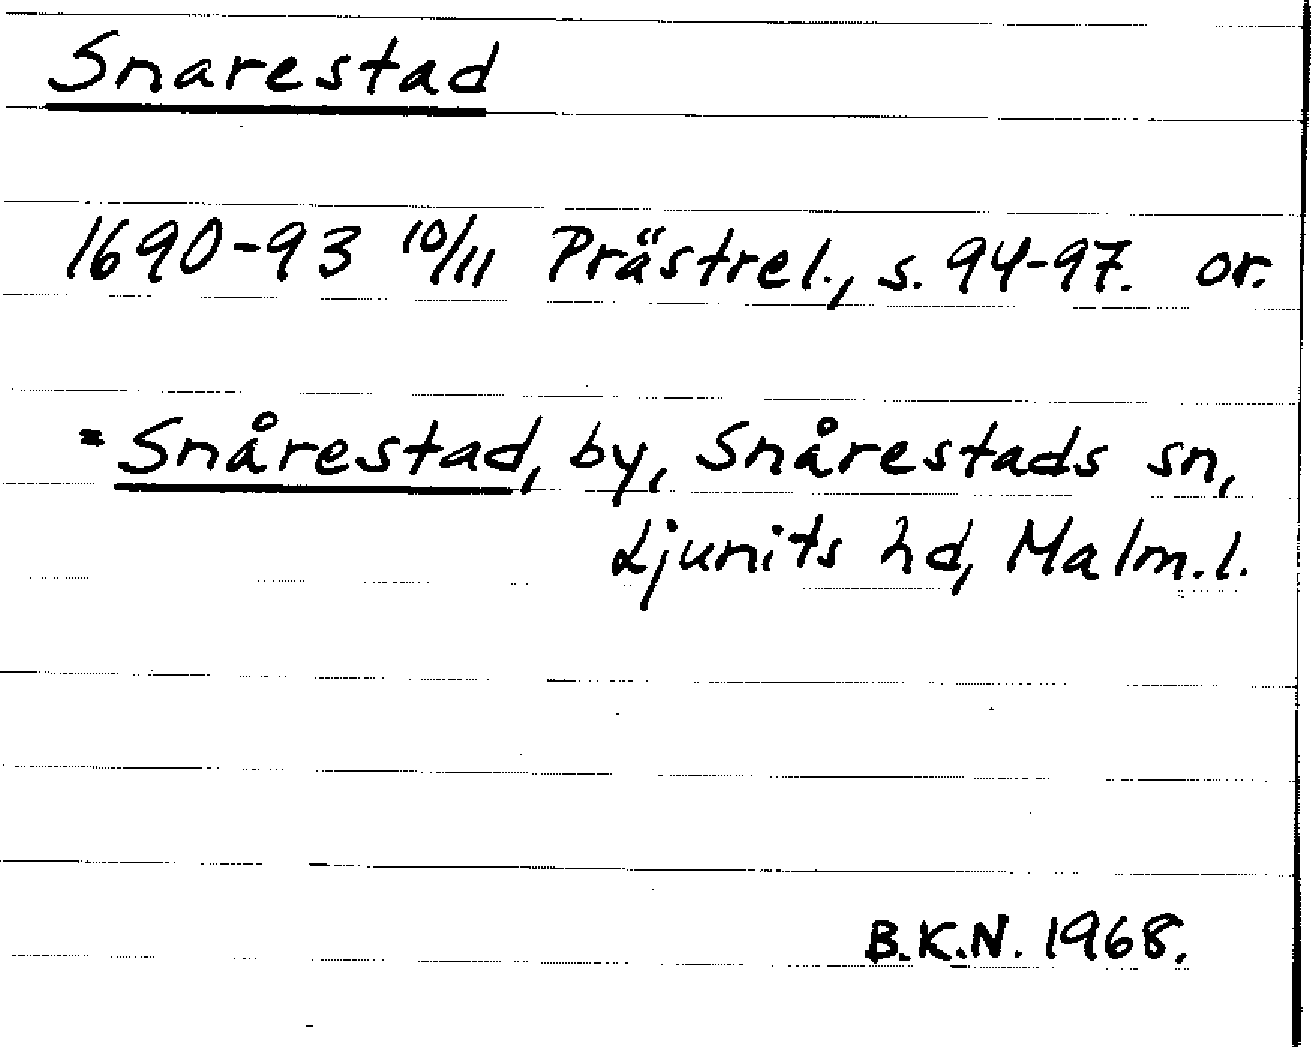 Snarestad
1690-93 10/11 Prästrel., s. 94-97. or.
= Snårestad, by, Snårestads sn,
Ljunits hd, Malm.l.
B.K.N. 1968.